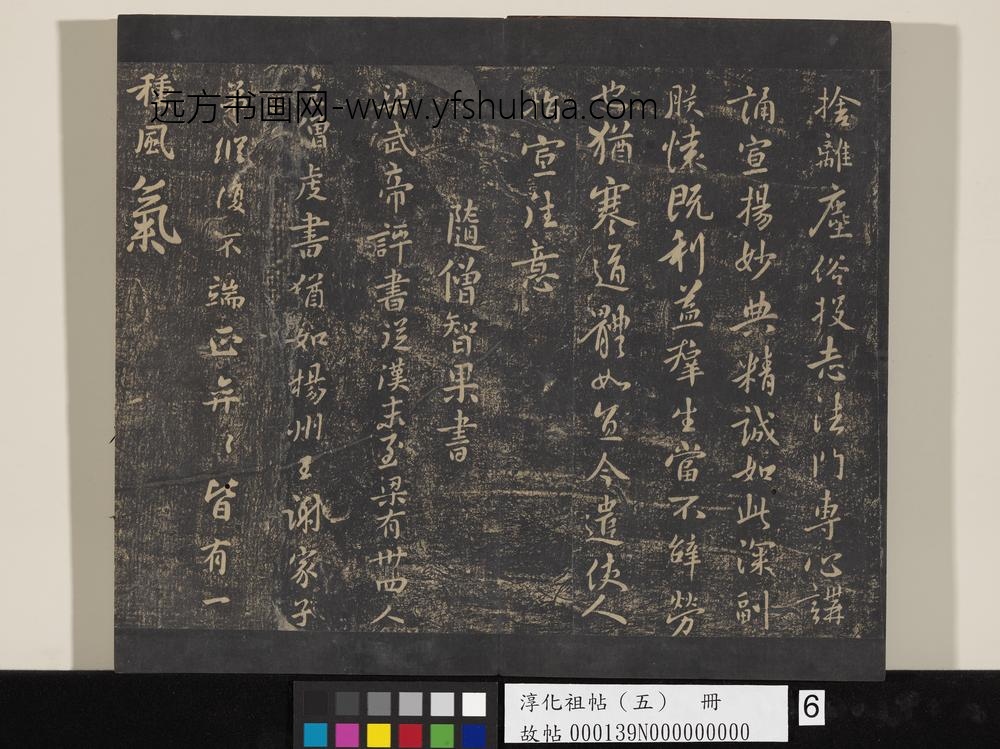 捨離塵俗投志法門專心講
誦宣揚妙典精誠如此深副
朕懷既利益群生當不辭勞
也猶寒道體如宜今遣使人
指宣往意
隨僧智果書
梁武帝評書從漢末至梁有卅四人
王僧虔書猶如揚州王謝家子
弟縱復不端正弈〻皆有一
種風氣
远方书画网-www.yfshuhua.com
淳化祖帖（五） 冊
故帖 000139N000000000
6